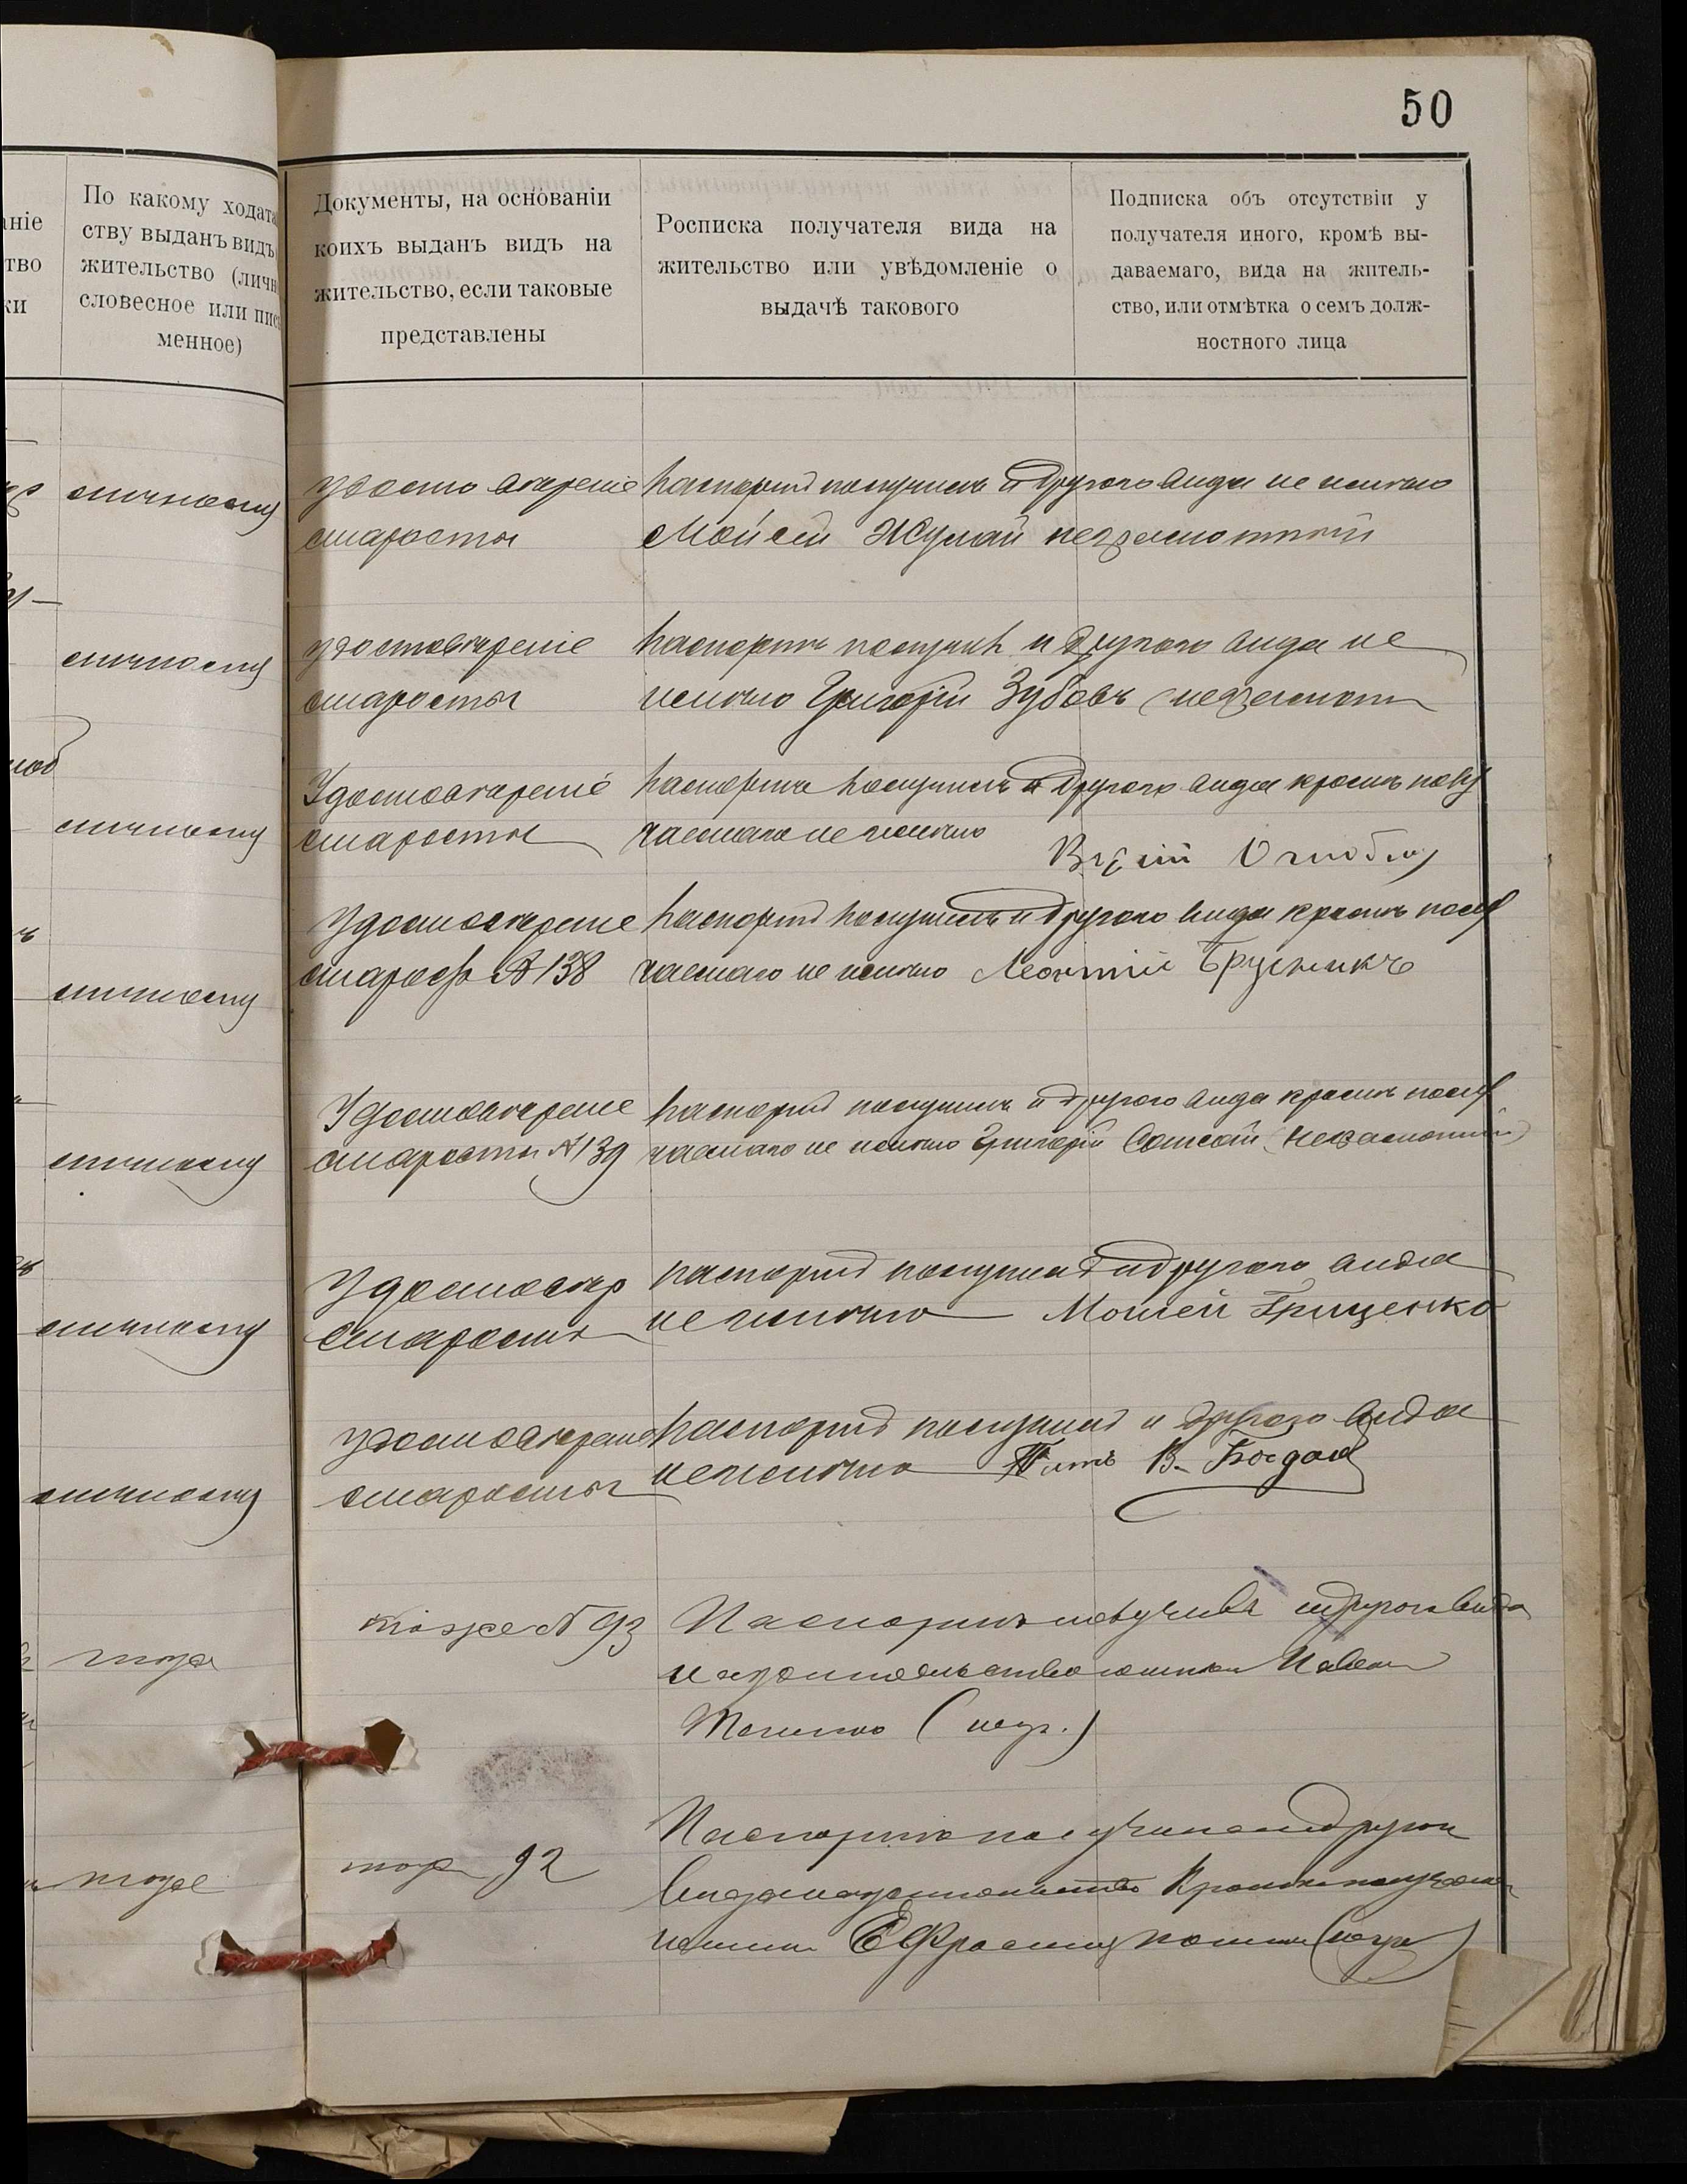 50
По какому ходата
ству выданъ видъ
жительство (личн
словесное или пис
менное)
аніе
тво
ки
Документы, на основаніи
коихъ выданъ видъ на
жительство, если таковые
представлены
Росписка получателя вида на
жительство или увѣдомленіе о
выдачѣ такового
Подписка объ отсутствіи у
получателя иного, кромѣ вы-
даваемаго, вида на житель-
ство, или отмѣтка о семъ долж-
ностного лица
личному
удостовереніе
старосты
паспортъ получилъ и другого вида не имею
Мойсей Жулай неграмотный
личному
удостовереніе
старосты
паспортъ получилъ и другого вида не
имею Григорій Зубовъ (неграмотн
личному
Удостовереніе
старосты
паспортъ получилъ и другого вида кромѣ полу
чаемаго не имею
личному
Удостовереніе
старосты №138
паспортъ получилъ и другого вида кромѣ полу
чаемаго не имею Леонтій
личному
Удостовереніе
старосты №139
паспортъ получилъ и другого вида кромѣ полу
чаемаго не имею Григорій (неграмотный)
личному
Удостовер
старосты
паспортъ получилъ и другого вида
не имею Моисей Грищенко
личному
удостовереніе
старосты
паспортъ получилъ и другого вида
не имею Титъ В. Богдан
тоже
тоже № 93
Паспортъ получилъ и другого вида
на жительство
(негр.)
тоже
тоже 92
Паспортъ получила и другого
вида на жительство Кромѣ получаем